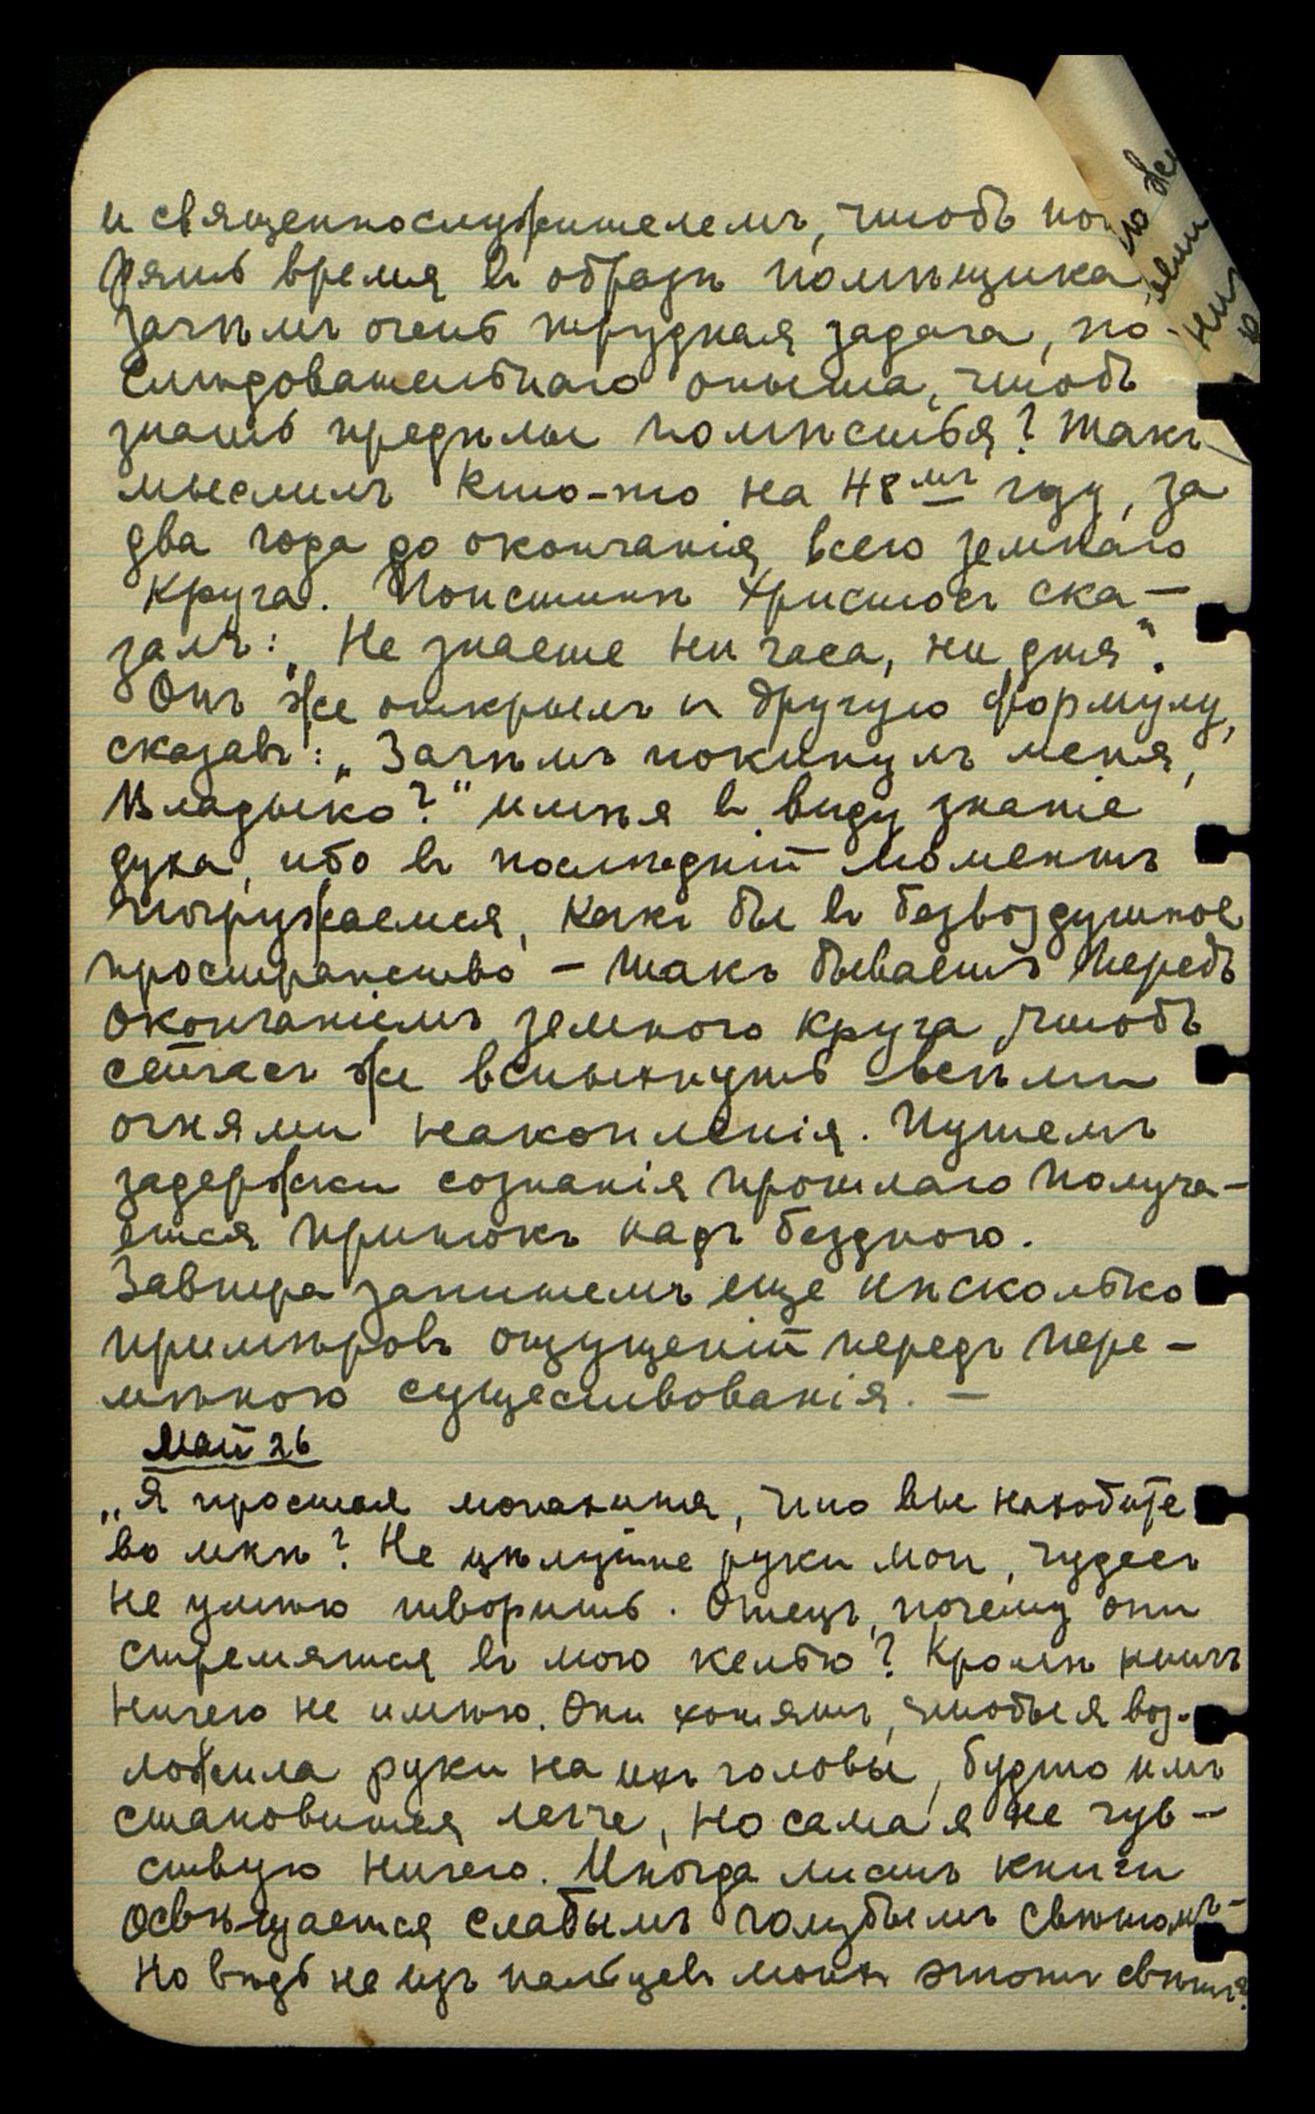 и священнослужителемъ, чтобъ по
рять время въ образѣ помѣщика
зачѣмъ очень трудная задача, по
слѣдовательнаго опыта, чтобъ
знать предѣлы помѣстья? Такъ
мыслилъ кто-то на 48мъ году, за
два года до окончанія всего земнаго
круга. Поистинѣ Христосъ ска-
залъ: „Не знаете ни часа, ни дня“.
Онъ же открылъ и другую формулу,
сказавъ: „Зачѣмъ покинулъ меня,
Владыко?“ имѣя въ виду знаніе
духа, ибо въ послѣдній моментъ
погружаемся, какъ бы въ безвоздушное
пространство – такъ бываетъ передъ
окончаніемъ земного круга, чтобъ
сейчасъ же вспыхнуть всѣми
огнями накопленія. Путемъ
задержки сознанія прошлаго получа-
ется прыжокъ надъ бездною.
Завтра запишемъ еще нѣсколько
примѣровъ ощущеній передъ пере-
мѣною существованія. –
Май 26
„Я простая монахиня, что вы находите
во мнѣ? Не цѣлуйте руки мои, чудесъ
не умѣю творить. Отецъ, почему они
стремятся въ мою келью? Кромѣ книгъ
ничего не имѣю. Они хотятъ, чтобы я воз-
ложила руки на ихъ головы, будто имъ
становится легче, но сама я не чув-
ствую ничего. Иногда листъ книги
освѣщается слабымъ голубымъ свѣтомъ-
Но вѣдь не изъ пальцевъ моихъ этотъ свѣтъ?